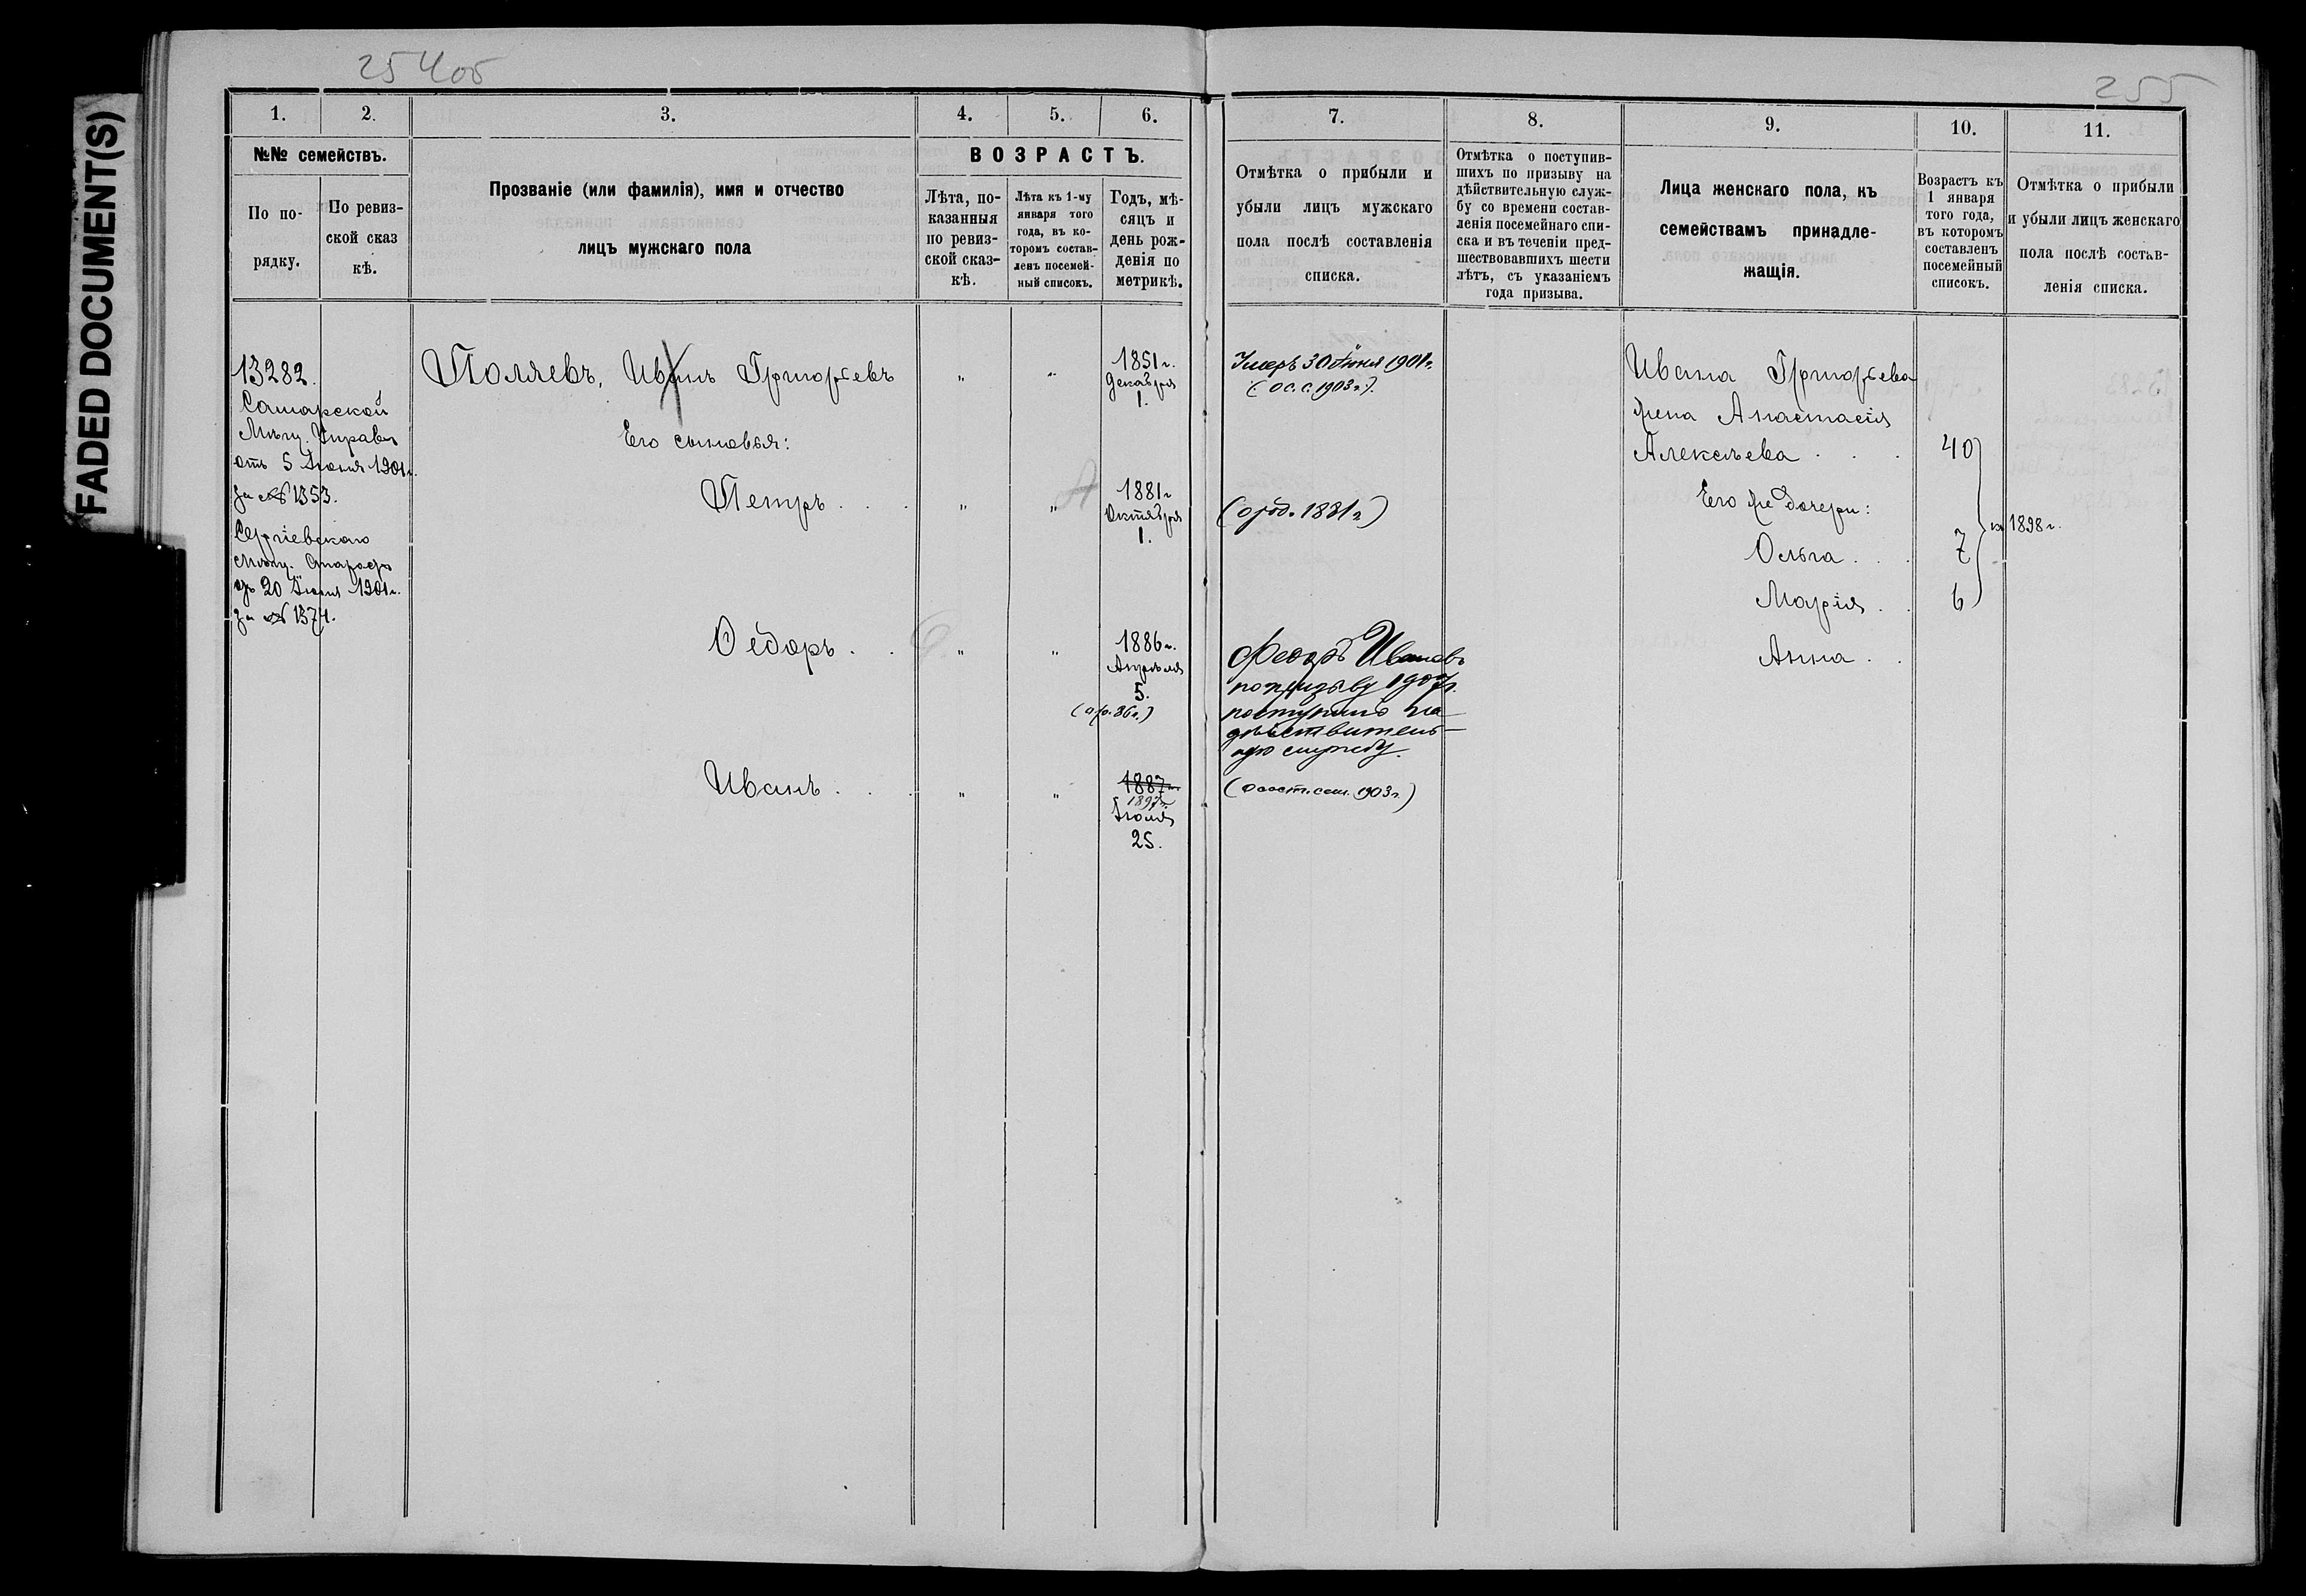 25405
255
FADED DOCUMENT(S)
1.
2.
3.
4.
5.
6.
7.
8.
9.
10.
11.
№№ семействъ.
По по-
рядку.
По ревиз-
ской сказ
кѣ.
Прозваніе (или фамилія), имя и отчество
лицъ мужскаго пола
ВОЗРАСТЪ.
Лѣта, по-
казанныя
по ревиз-
ской сказ-
кѣ.
Лѣта къ 1-му
января того
года, въ ко-
торомъ состав-
ленъ посемей-
ный списокъ.
Годъ, мѣ-
сяцъ и
день рож-
денія по
метрикѣ.
Отмѣтка о прибыли и
убыли лицъ мужскаго
пола послѣ составленія
списка.
Отмѣтка о поступив-
шихъ по призыву на
дѣйствительную служ-
бу со времени состав-
ленія посемейнаго спи-
ска и въ теченіи пред-
шествовавшихъ шести
лѣтъ, съ указаніемъ
года призыва.
Лица женскаго пола, къ
семействамъ принадле-
жащія.
Возрастъ къ
1 января
того года,
въ которомъ
составленъ
посемейный
списокъ.
Отмѣтка о прибыли
и убыли лицъ женскаго
пола послѣ состав-
ленія списка.
13282.
Самарской
Мѣщ. Управы
отъ 5 Іюня 1901 г.
за № 1353.
Сергіевского
Мѣщ. Старосты
отъ 20 Іюня 1901 г.
за № 1374.
Поляевъ, Иванъ Григорьевъ " " 1851 г.
Декабря
1.
Умеръ 30 Іюня 1901 г.
(о с. с. 1903 г.)
Его сыновья:
Петръ . . . " " 1881 г.
Октября
1.
(о род. 1881 г)
Ѳедоръ . . " " 1886 г.
Апрѣля
5.
(о р. 86 г.)
Федоръ Ивановъ
по призыву 1907 г.
поступилъ на
дѣйствитель-
ную службу.
Иванъ . . . " " 1887 г.
1897 г.
Іюля
25.
(о сост. сем. 1903 г.)
Ивана Григорьева
жена Анастасія
Алексѣева . . . 40
Его же дочери:
к 1898 г.
Ольга . . . 7
Марія . . 6
Анна . .